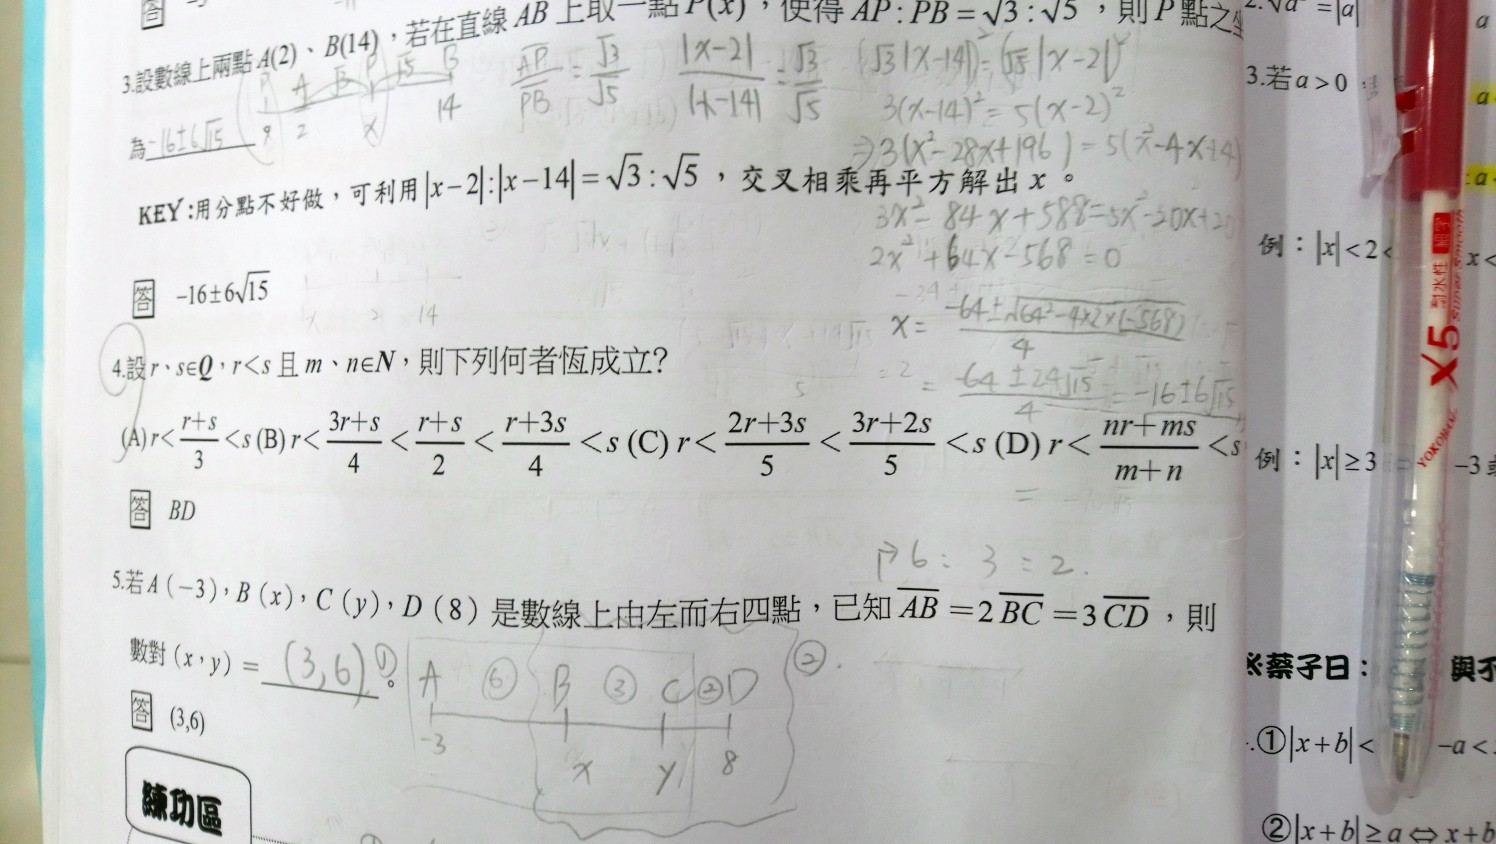 答
3.設數線上兩點 A(2)、B(14)，若在直線 AB 上取一點 P(x)，使得 AP : PB = √3 : √5，則 P 點之
為 -16±6√15
P A B P √5 B
2 x 14
AP/PB = √3/√5
|x-2|/|x-14| = √3/√5
(√3|x-14|)² = (√5|x-2|)²
3(x-14)² = 5(x-2)²
⇒3(x²-28x+196) = 5(x²-4x+4)
KEY:用分點不好做，可利用 |x-2|:|x-14| = √3 : √5，交叉相乘再平方解出 x。
3x²-84x+588=5x²-20x+20
2x²+64x-568=0
答 -16±6√15
x= (-64±√(64²-4×2×(-568)))/4
= (-64±24√15)/4 = -16±6√15
4.設 r、s∈Q，r<s 且 m、n∈N，則下列何者恆成立?
(A) r< (r+s)/3 <s (B) r< (3r+s)/4 < (r+s)/2 < (r+3s)/4 <s (C) r< (2r+3s)/5 < (3r+2s)/5 <s (D) r< (nr+ms)/(m+n) <s
答 BD
6 : 3 : 2.
5.若 A（-3），B（x），C（y），D（8）是數線上由左而右四點，已知 AB = 2 BC = 3 CD，則
數對 (x，y) = (3,6) ①。
A ⑥ B ③ C ② D ②.
-3 x y 8
答 (3,6)
練功區
2. √a² = |a|
3.若 a > 0
例：|x|<2
例：|x|≥3 -3
※蔡子曰：
①|x+b|< -a<
②|x+b|≥a⇔x+b
X5
耐水性
YOKOMAC